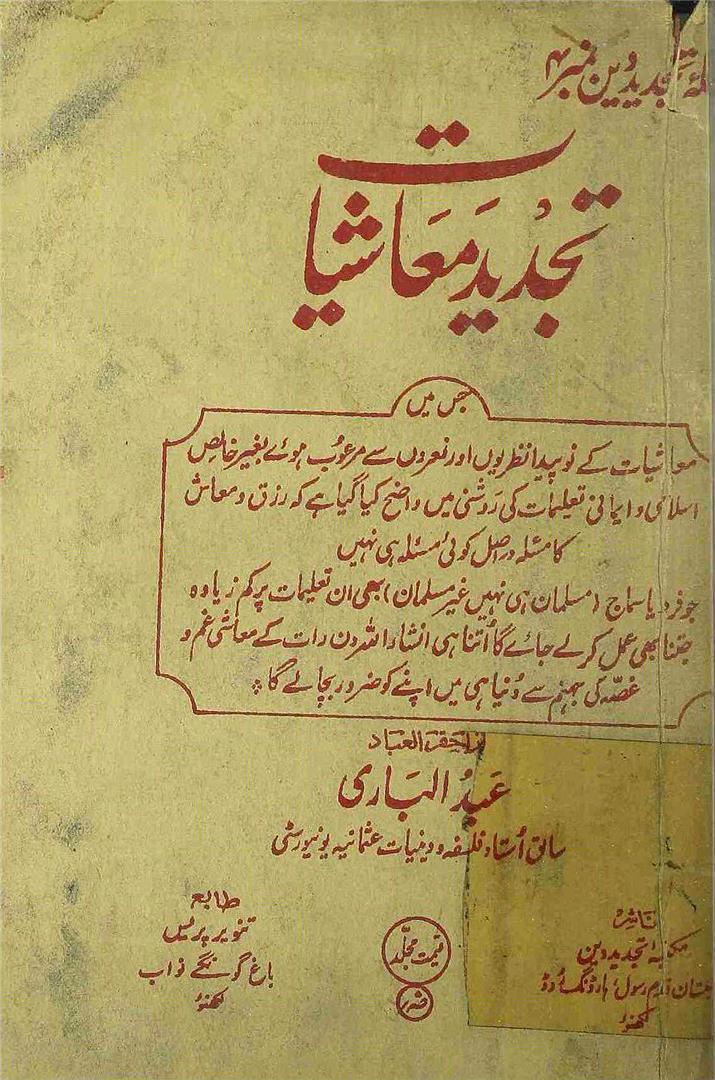 تجدید دین نمبر ۴
تجدید معاشیات
جس میں
معاشیات کے نوپیدا نظریوں اور نعروں سے مرعوب ہوئے بغیر خالص
اسلامی و ایمانی تعلیمات کی روشنی میں واضح کیا گیا ہے کہ رزق و معاش
کا مسئلہ دراصل کوئی مسئلہ ہی نہیں
جو فرد یا سماج (مسلمان ہی نہیں غیر مسلمان) بھی ان تعلیمات پر کم زیادہ
جتنا بھی عمل کرلے جائے گا اُتنا ہی انشاء اللہ دن رات کے معاشی غم و
غصّہ کی جہنم سے دُنیا ہی میں اپنے کو ضرور بچالے گا
از احقر العباد
عَبدُ الباری
سابق اُستاد فلسفہ و دینیات عثمانیہ یونیورسٹی
ناشر
مکتبۂ تجدید دین
قدم رسول، ہارڈنگ روڈ
لکھنؤ
قیمت مجلّد
طابع
تنویر پریس
باغ گونگے نواب
لکھنؤ